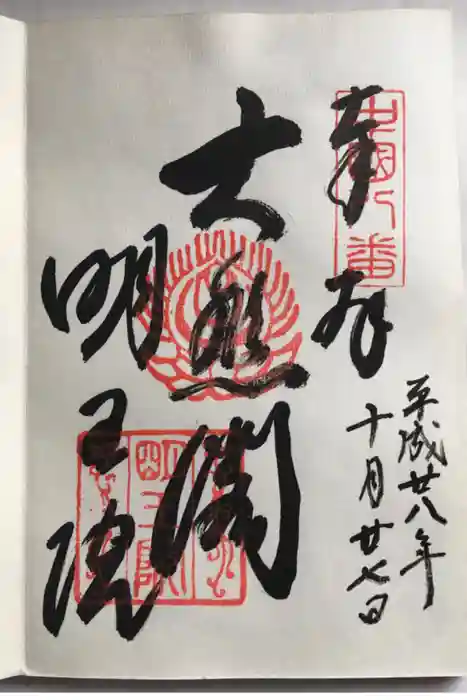 奉拝
中國八番
平成廿八年
十月廿七日
大悲閣
明王院
明王院